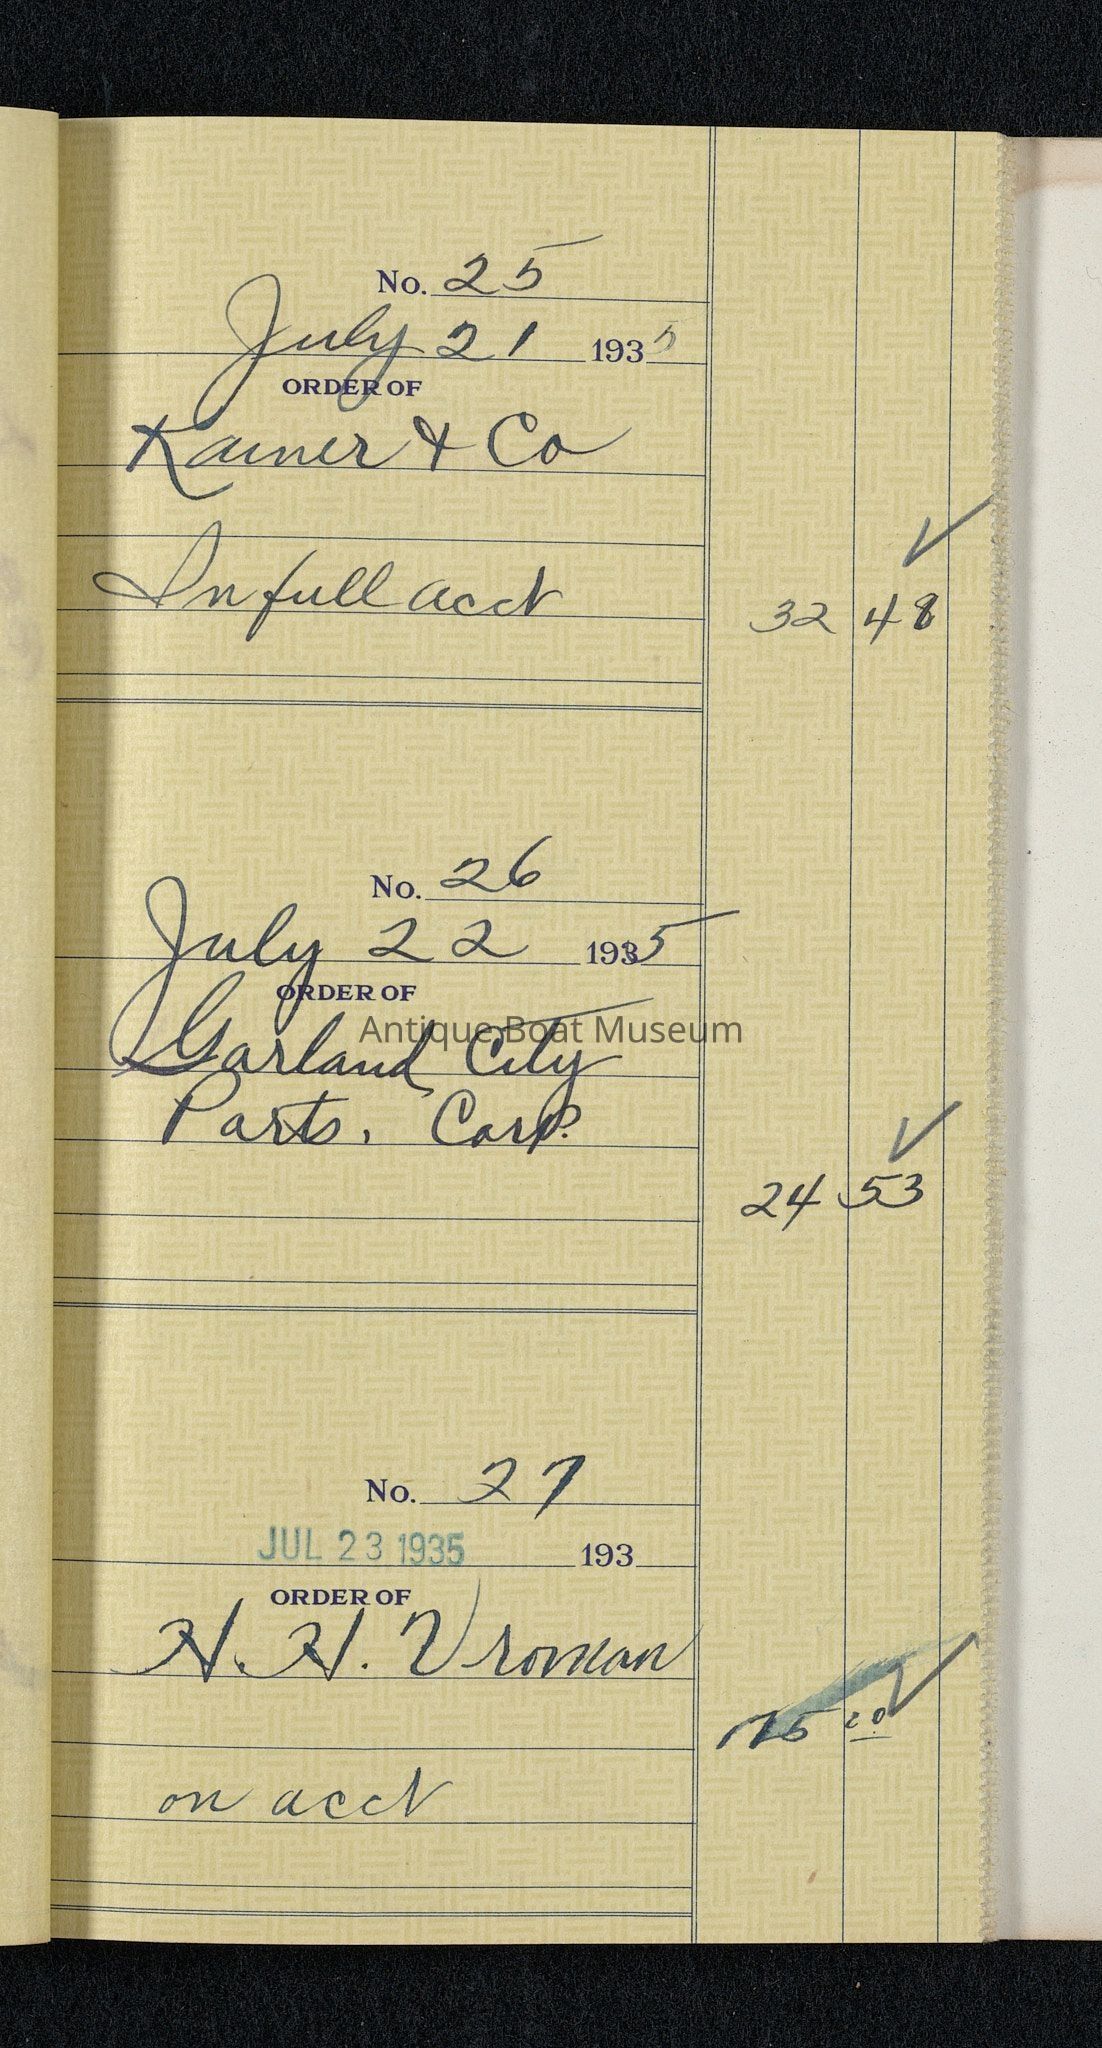 No. 25
July 21 1935
ORDER OF
Kamer & Co
In full acct
32 48
No. 26
July 22 1935
ORDER OF
Antique Boat Museum
Garland City
Parts. Corp.
24 53
No. 27
JUL 23 1935 193
ORDER OF
H. H. Vroman
on acct